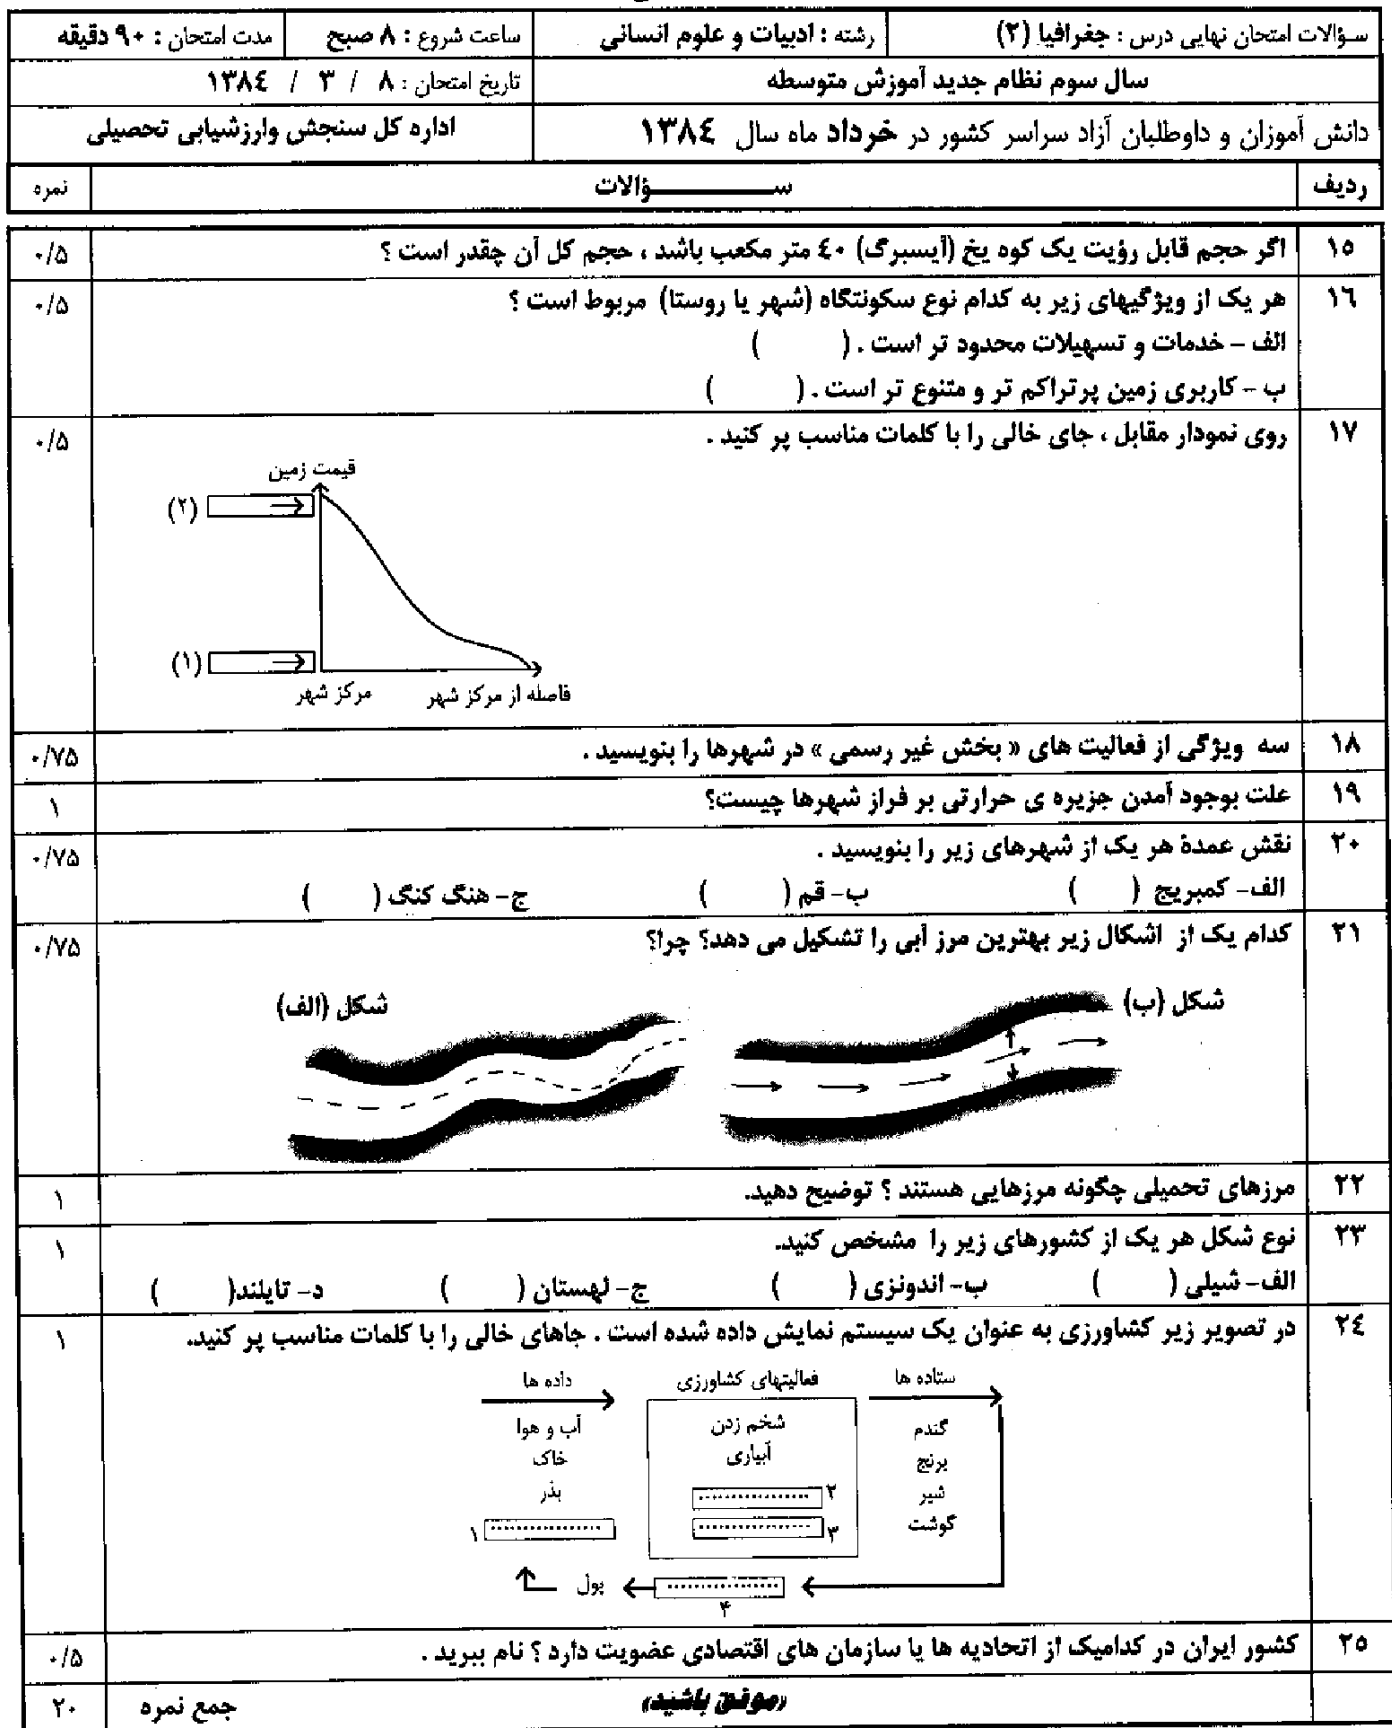 سؤالات امتحان نهایی درس : جغرافیا (۲) رشته : ادبیات و علوم انسانی ساعت شروع : ۸ صبح مدت امتحان : ۹۰ دقیقه
سال سوم نظام جدید آموزش متوسطه تاریخ امتحان : ۸ / ۳ / ۱۳۸٤
دانش آموزان و داوطلبان آزاد سراسر کشور در خرداد ماه سال ۱۳۸٤ اداره کل سنجش وارزشیابی تحصیلی
ردیف ســـــــؤالات نمره
۱۵ اگر حجم قابل رؤیت یک کوه یخ (آیسبرگ) ٤۰ متر مکعب باشد ، حجم کل آن چقدر است ؟ ۰/۵
۱٦ هر یک از ویژگیهای زیر به کدام نوع سکونتگاه (شهر یا روستا) مربوط است ؟ ۰/۵
الف – خدمات و تسهیلات محدود تر است . ( )
ب – کاربری زمین پرتراکم تر و متنوع تر است . ( )
۱۷ روی نمودار مقابل ، جای خالی را با کلمات مناسب پر کنید . ۰/۵
قیمت زمین
(۲)
(۱)
مرکز شهر فاصله از مرکز شهر
۱۸ سه ویژگی از فعالیت های « بخش غیر رسمی » در شهرها را بنویسید . ۰/۷۵
۱۹ علت بوجود آمدن جزیره ی حرارتی بر فراز شهرها چیست؟ ۱
۲۰ نقش عمدۀ هر یک از شهرهای زیر را بنویسید . ۰/۷۵
الف- کمبریج ( ) ب- قم ( ) ج- هنگ کنگ ( )
۲۱ کدام یک از اشکال زیر بهترین مرز آبی را تشکیل می دهد؟ چرا؟ ۰/۷۵
شکل (ب) شکل (الف)
۲۲ مرزهای تحمیلی چگونه مرزهایی هستند ؟ توضیح دهید. ۱
۲۳ نوع شکل هر یک از کشورهای زیر را مشخص کنید. ۱
الف- شیلی ( ) ب- اندونزی ( ) ج- لهستان ( ) د- تایلند( )
۲٤ در تصویر زیر کشاورزی به عنوان یک سیستم نمایش داده شده است . جاهای خالی را با کلمات مناسب پر کنید. ۱
ستاده ها فعالیتهای کشاورزی داده ها
گندم شخم زدن آب و هوا
برنج آبیاری خاک
شیر ۲ .................. بذر
گوشت ۳ .................. ۱ ..................
.................. پول
۴
۲۵ کشور ایران در کدامیک از اتحادیه ها یا سازمان های اقتصادی عضویت دارد ؟ نام ببرید . ۰/۵
«موفق باشید» جمع نمره ۲۰